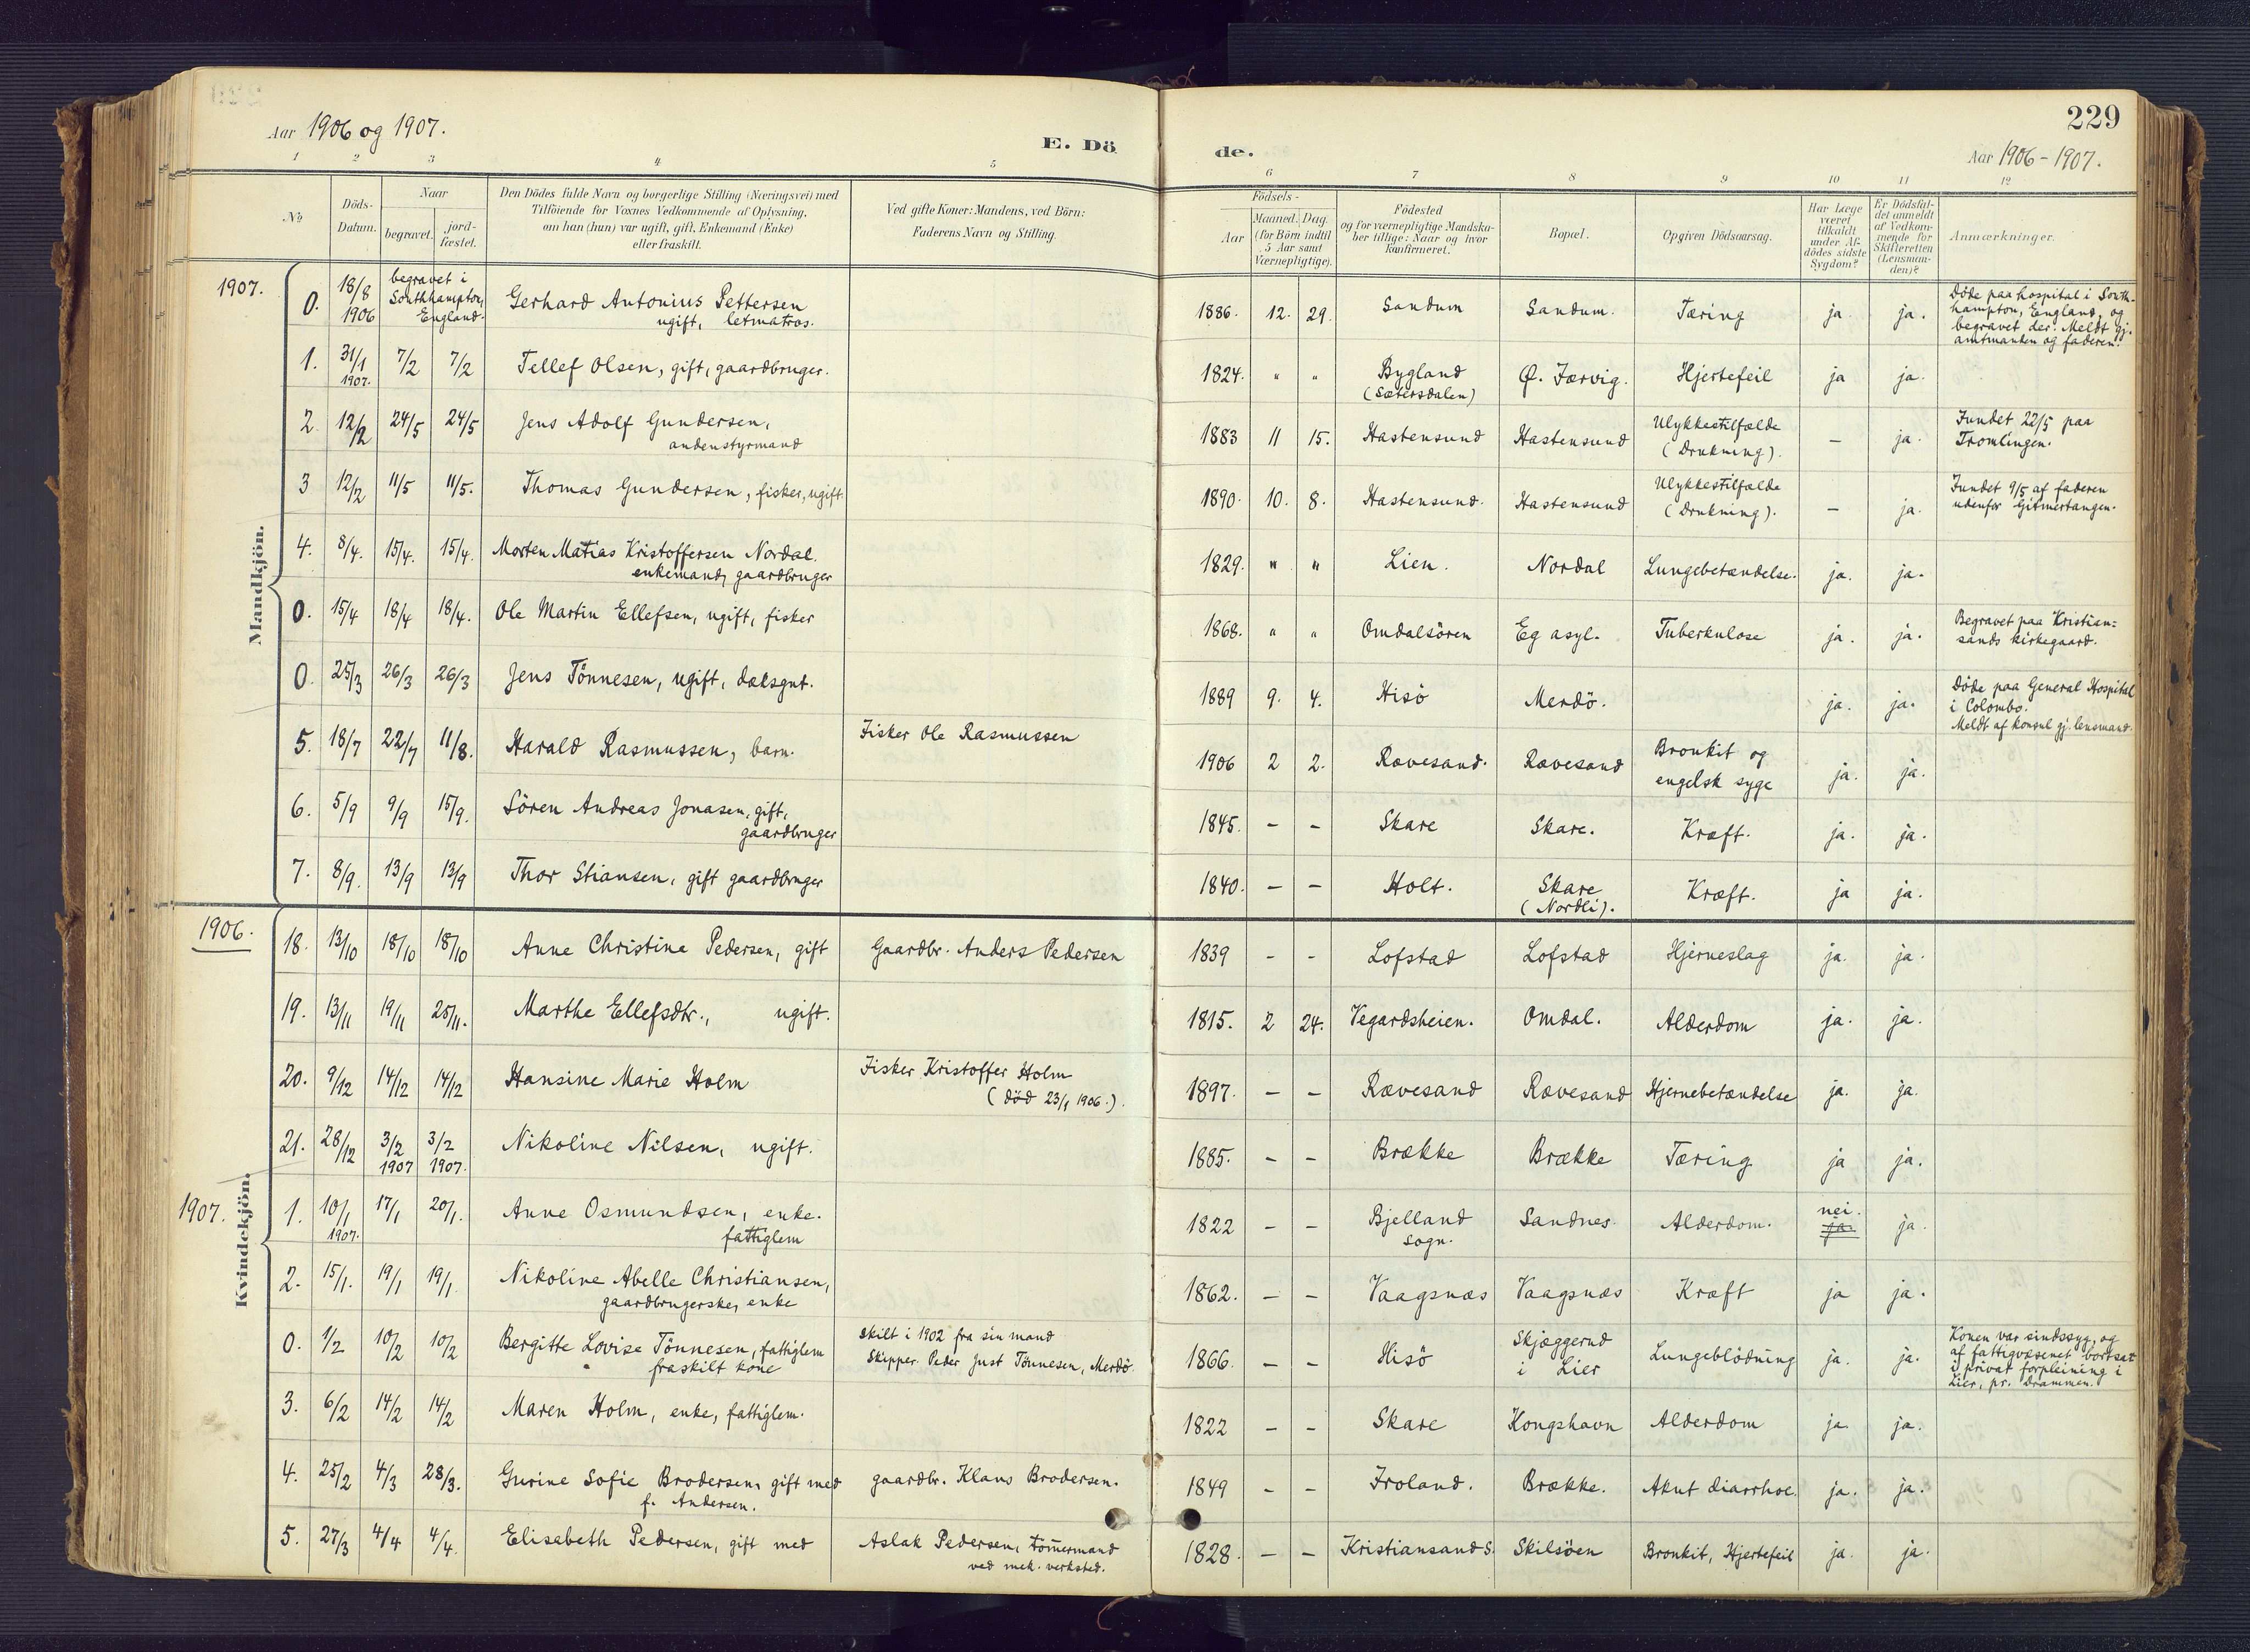 229
Aar 1906 og 1907.
E. Dö
de.
Aar 1906 - 1907.
1 2 3 4 5 6 7 8 9 10 11 12
No
Döds-
Datum.
Naar
begravet.
jord-
fæstet.
Den Dödes fulde Navn og borgerlige Stilling (Næringsvei) med
Tilföiende for Voxnes Vedkommende af Oplysning,
om han (hun) var ugift, gift, Enkemand (Enke)
eller fraskilt.
Ved gifte Koner: Mandens, ved Börn:
Faderens Navn og Stilling.
Födsels-
Aar
Maaned. Dag.
(for Börn indtil
5 Aar samt
Værnepligtige).
Födested
og for værnepligtige Mandska-
ber tillige: Naar og hvor
konfirmeret.
Bopæl.
Opgiven Dödsaarsag.
Har Læge
været
tilkaldt
under Af-
dödes sidste
Sygdom?
Er Dödsfal-
det anmeldt
af Vedkom-
mende for
Skifteretten
(Lensman-
den)?
Anmærkninger.
Mandkjön.
1907.
0. 18/8 1906 begravet i Southhampton, England. Gerhard Antonius Pettersen ugift, letmatros. 1886. 12. 29. Sandum Sandum. Tæring ja. ja. Döde paa hospital i South-
hampton, England, og
begravet der. Meldt gj.
amtmanden og faderen.
1. 31/1 1907. 7/2 7/2 Tellef Olsen, gift, gaardbruger. 1824. " " Bygland (Sætersdalen) Ø. Jærvig. Hjertefeil ja ja.
2. 12/2 24/5 24/5 Jens Adolf Gundersen, andenstyrmand 1883 11 15. Hastensund Hastensund Ulykkestilfælde (Drukning). – ja. Fundet 22/5 paa
Tromlingen.
3 12/2 11/5 11/5. Thomas Gundersen, fisker, ugift. 1890. 10. 8. Hastensund. Hastensund Ulykkestilfælde (Drukning). – ja. Fundet 9/5 af faderen
udenfor Gitmertangen.
4. 8/4. 15/4. 15/4. Morten Matias Kristoffersen Nordal. enkemand, gaardbruger 1829. " " Lien. Nordal Lungebetændelse. ja. ja.
0. 15/4 18/4 18/4. Ole Martin Ellefsen, ugift, fisker 1868. " " Omdalsören Eg asyl. Tuberkulose ja. ja. Begravet paa Kristian=
sands kirkegaard.
0. 25/3 26/3 26/3 Jens Tönnesen, ugift, dæksgut. 1889 9. 4. Hisö Merdö. ja. ja. Döde paa General Hospital
i Colombo.
Meldt af konsul gj. lensmand.
5. 18/7 22/7 11/8. Harald Rasmussen, barn. Fisker Ole Rasmussen 1906 2 2. Rævesand. Rævesand Bronkit og engelsk syge ja. ja.
6. 5/9 9/9 15/9. Sören Andreas Jonasen, gift, gaardbruger 1845. – – Skare Skare. Kræft. ja. ja.
7. 8/9. 13/9 13/9 Thor Stiansen, gift gaardbruger 1840. – – Holt. Skare (Nordli). Kræft. ja ja.
Kvindekjön.
1906.
18. 13/10 18/10 18/10 Anne Christine Pedersen, gift Gaardbr. Anders Pedersen 1839 - - Lofstad Lofstad Hjerneslag ja. ja.
19. 13/11 19/11 25/11. Marthe Ellefsdtr., ugift. 1815. 2 24. Vegardsheien. Omdal. Alderdom ja. ja.
20. 9/12 14/12 14/12 Hansine Marie Holm Fisker Kristoffer Holm (död 23/1 1906.). 1897. – – Rævesand Rævesand Hjernebetændelse ja. ja.
21. 28/12 3/2 1907 3/2 1907. Nikoline Nilsen, ugift. 1885. – – Brække Brække Tæring ja ja.
1907.
1. 10/1 1907. 17/1 20/1. Anne Osmundsen, enke. fattiglem 1822 – – Bjelland sogn. Sandnes. Alderdom. nei. ja. ja.
2. 15/1. 19/1 19/1 Nikoline Abelle Christiansen, gaardbrugerske, enke 1862. – – Vaagsnæs Vaagsnæs Kræft ja ja.
0. 1/2 10/2 10/2 Bergitte Lovise Tönnesen, fattiglem fraskilt kone skilt i 1902 fra sin mand
Skipper Peder Just Tönnesen, Merdö. 1866. – – Hisö Skjæggerud i Lier Lungeblödning ja. ja. Konen var sindssyg, og
af fattigvæsenet bortsat
i privat forpleining i
Lier, pr. Drammen.
3. 6/2 14/2 14/2 Maren Holm, enke, fattiglem. 1822 – – Skare Kongshavn Alderdom ja ja.
4. 25/2 4/3 28/3. Gurine Sofie Brodersen, gift med f. Andersen. gaardbr. Klaus Brodersen. 1849 – – Froland. Brække. Akut diarrhoe. ja. ja.
5. 27/3 4/4 4/4. Elisabeth Pedersen, gift med Aslak Pedersen, tömmermand
ved mek. verksted. 1828. – – Kristiansand S. Skilsöen Bronkit, Hjertefeil ja. ja.